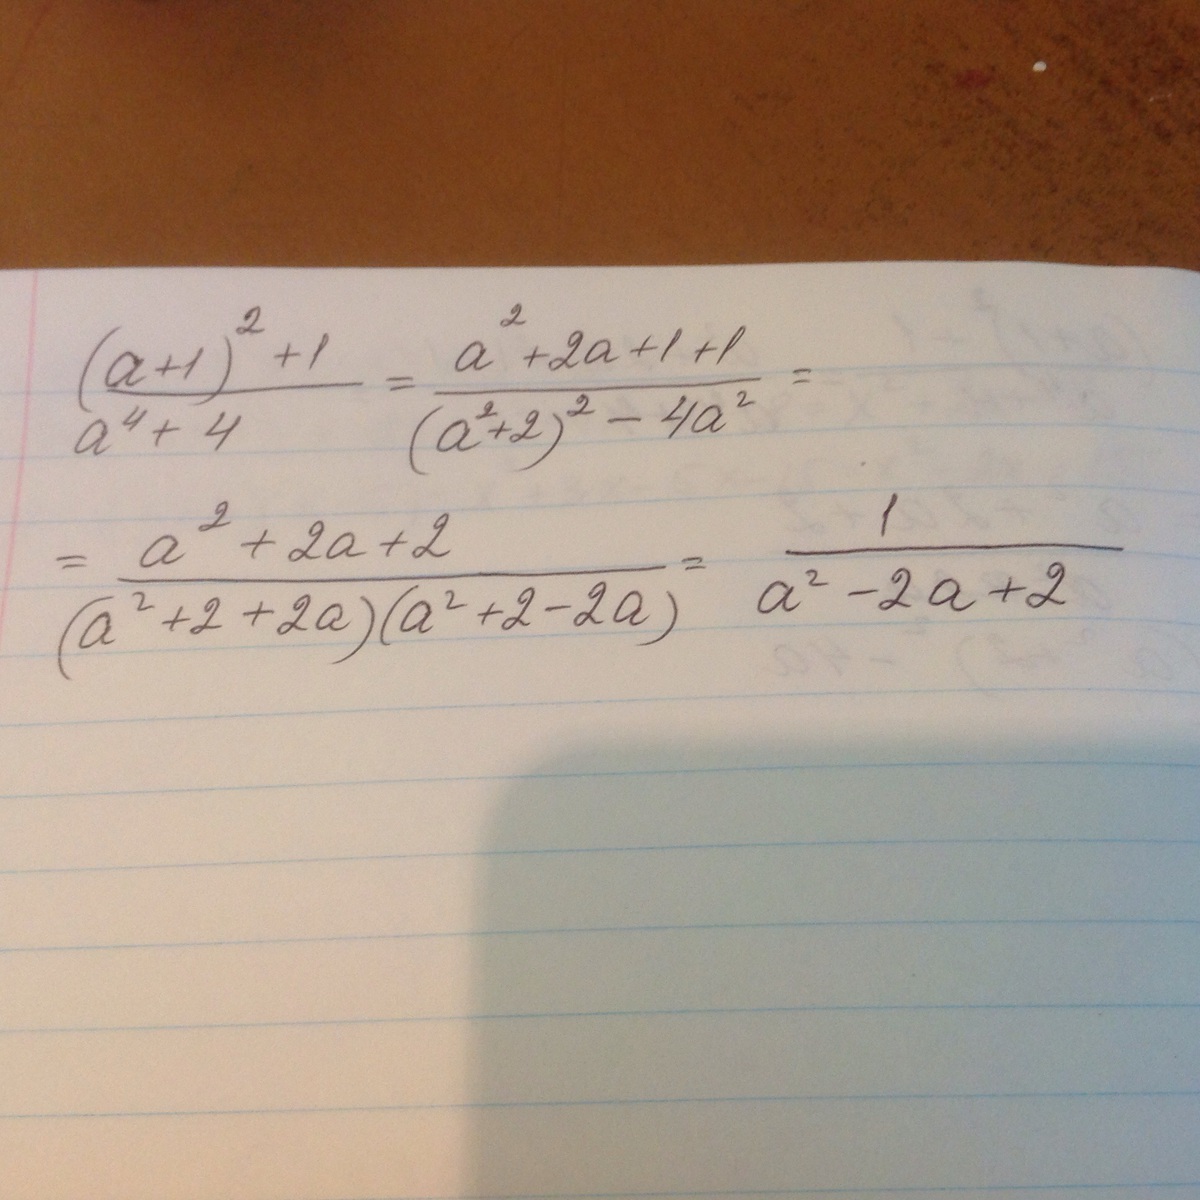 ((a+1)² + 1)/(a⁴ + 4) = (a² + 2a + 1 + 1)/((a²+2)² - 4a²) =
= (a² + 2a + 2)/((a² + 2 + 2a)(a² + 2 - 2a)) = 1/(a² - 2a + 2)